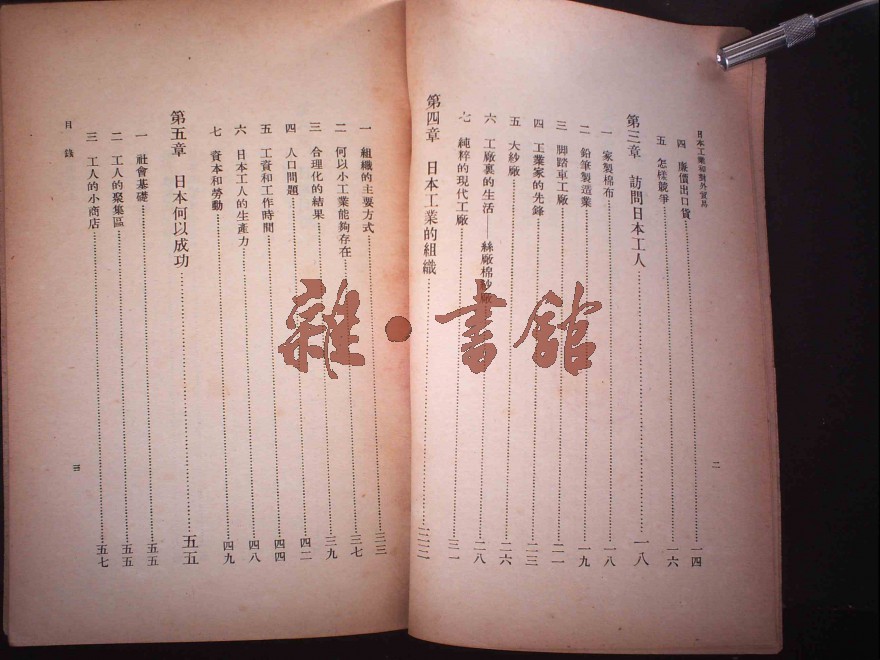 日本工業和對外貿易
四 廉價出口貨……一四
五 怎樣競爭……一六
第三章 訪問日本工人……一八
一 家製棉布……一八
二 鉛筆製造業……一九
三 脚踏車工廠……二一
四 工業家的先鋒……二三
五 大紗廠……二六
六 工廠裏的生活——絲廠棉紗廠……二八
七 純粹的現代工廠……三一
第四章 日本工業的組織……三三
二
一 組織的主要方式……三三
二 何以小工業能夠存在……三七
三 合理化的結果……三九
四 人口問題……四二
五 工資和工作時間……四四
六 日本工人的生產力……四八
七 資本和勞動……四九
第五章 日本何以成功……五五
一 社會基礎……五五
二 工人的聚集區……五五
三 工人的小商店……五七
目錄
三
雜·書館